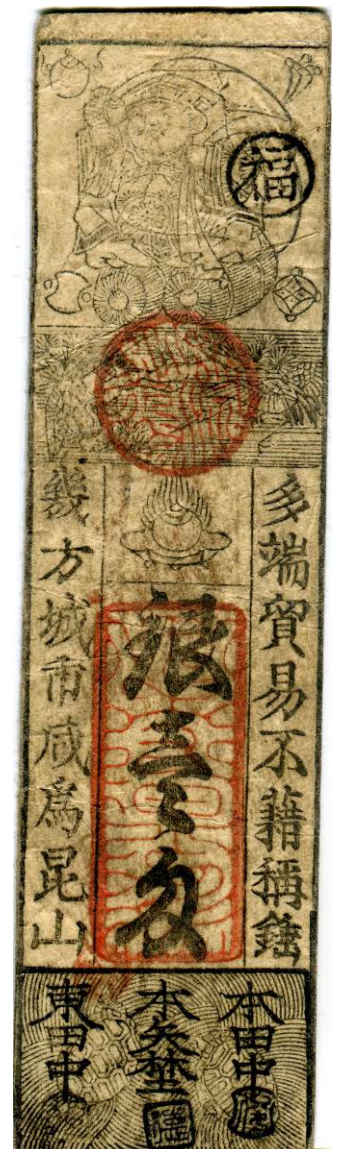 福
多端貿易不藉稱錘
銀壹匁
幾方城市咸為昆山
本田中
本矢埜
東田中